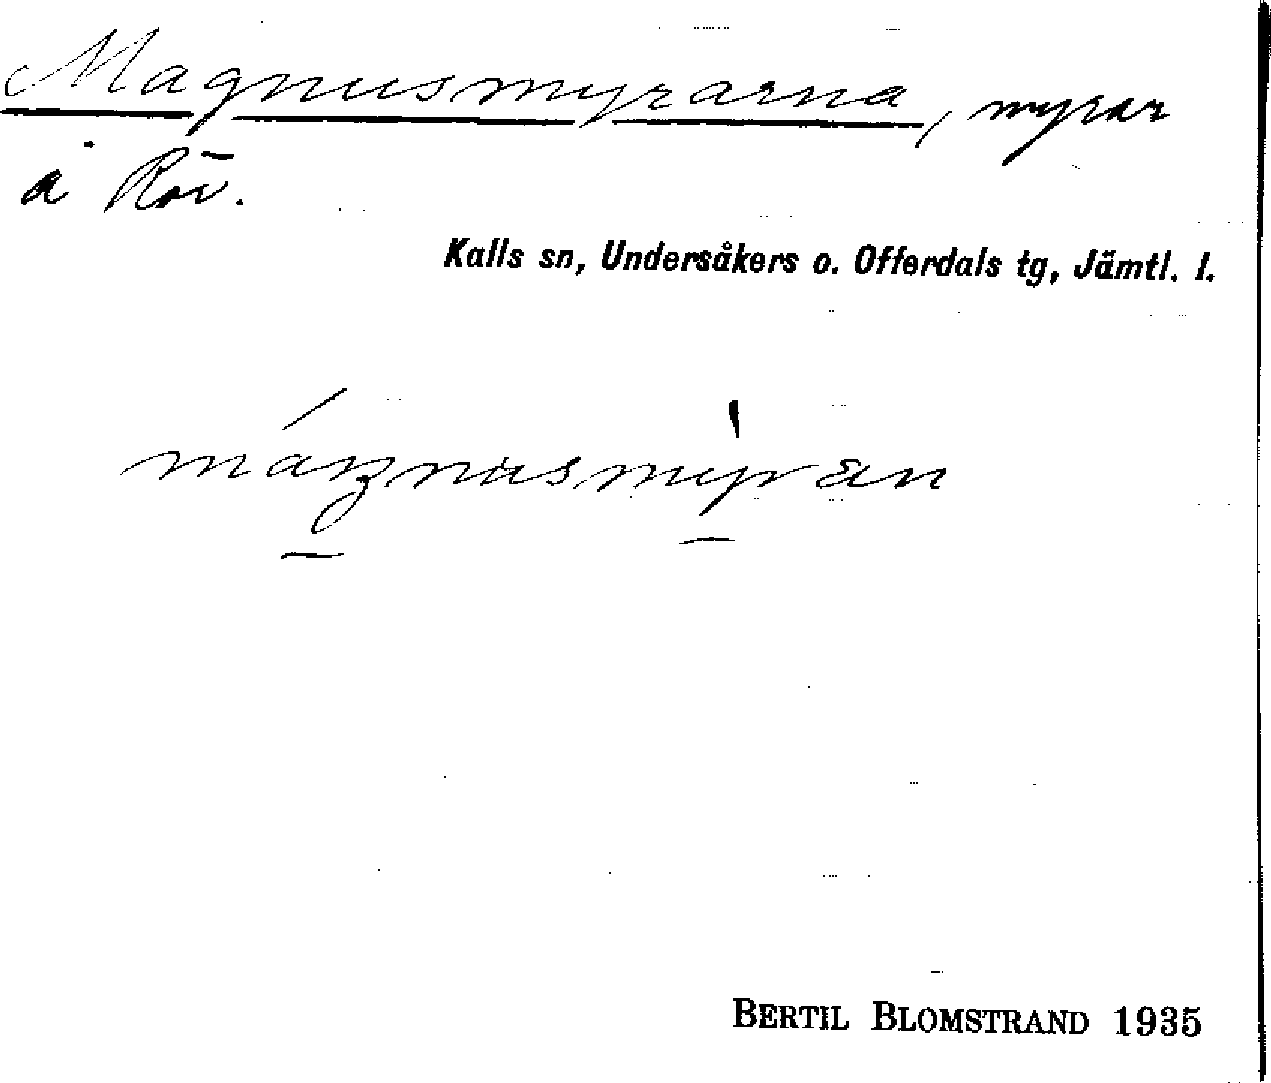 Magnusmyrarna, myrar
å Röv.
Kalls sn, Undersåkers o. Offerdals tg, Jämtl. l.
máŋnusmýran
BERTIL BLOMSTRAND 1935